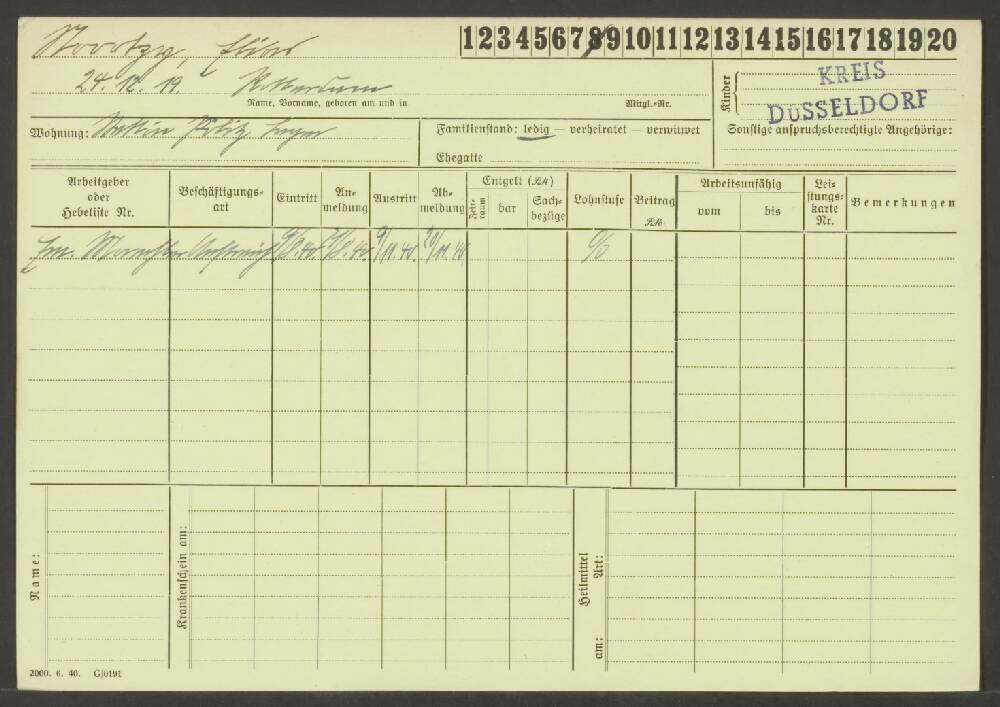 1 2 3 4 5 6 7 8 9 10 11 12 13 14 15 16 17 18 19 20
24. 12. 19. Rotterdam
Name, Vorname, geboren am und in
Mitgl.-Nr.
Kinder
KREIS
DÜSSELDORF
Wohnung: Lager
Familienstand: ledig — verheiratet — verwitwet
Ehegatte
Sonstige anspruchsberechtigte Angehörige:
Arbeitgeber oder Hebeliste Nr.
Beschäftigungs-art
Eintritt
An-meldung
Austritt
Ab-meldung
Entgelt (RM)
Zeit-raum
bar
Sach-bezüge
Lohnstufe
Beitrag RM
Arbeitsunfähig
vom
bis
Lei-stungs-karte Nr.
Bemerkungen
Name:
Krankenschein am:
Heilmittel
Art:
am:
2000. 6. 40. G/0191